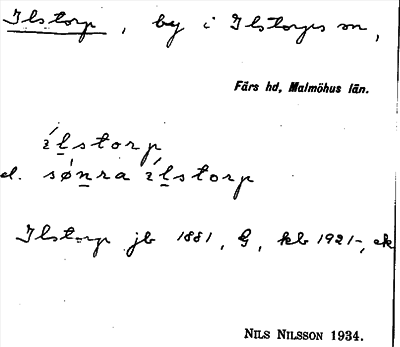 Ilstorp, by i Ilstorps sn,
Färs hd, Malmöhus län.
ílstorp
el. sǿnra ílstorp
Ilstorp jb 1881, G, kb 1921-, ek
NILS NILSSON 1934.